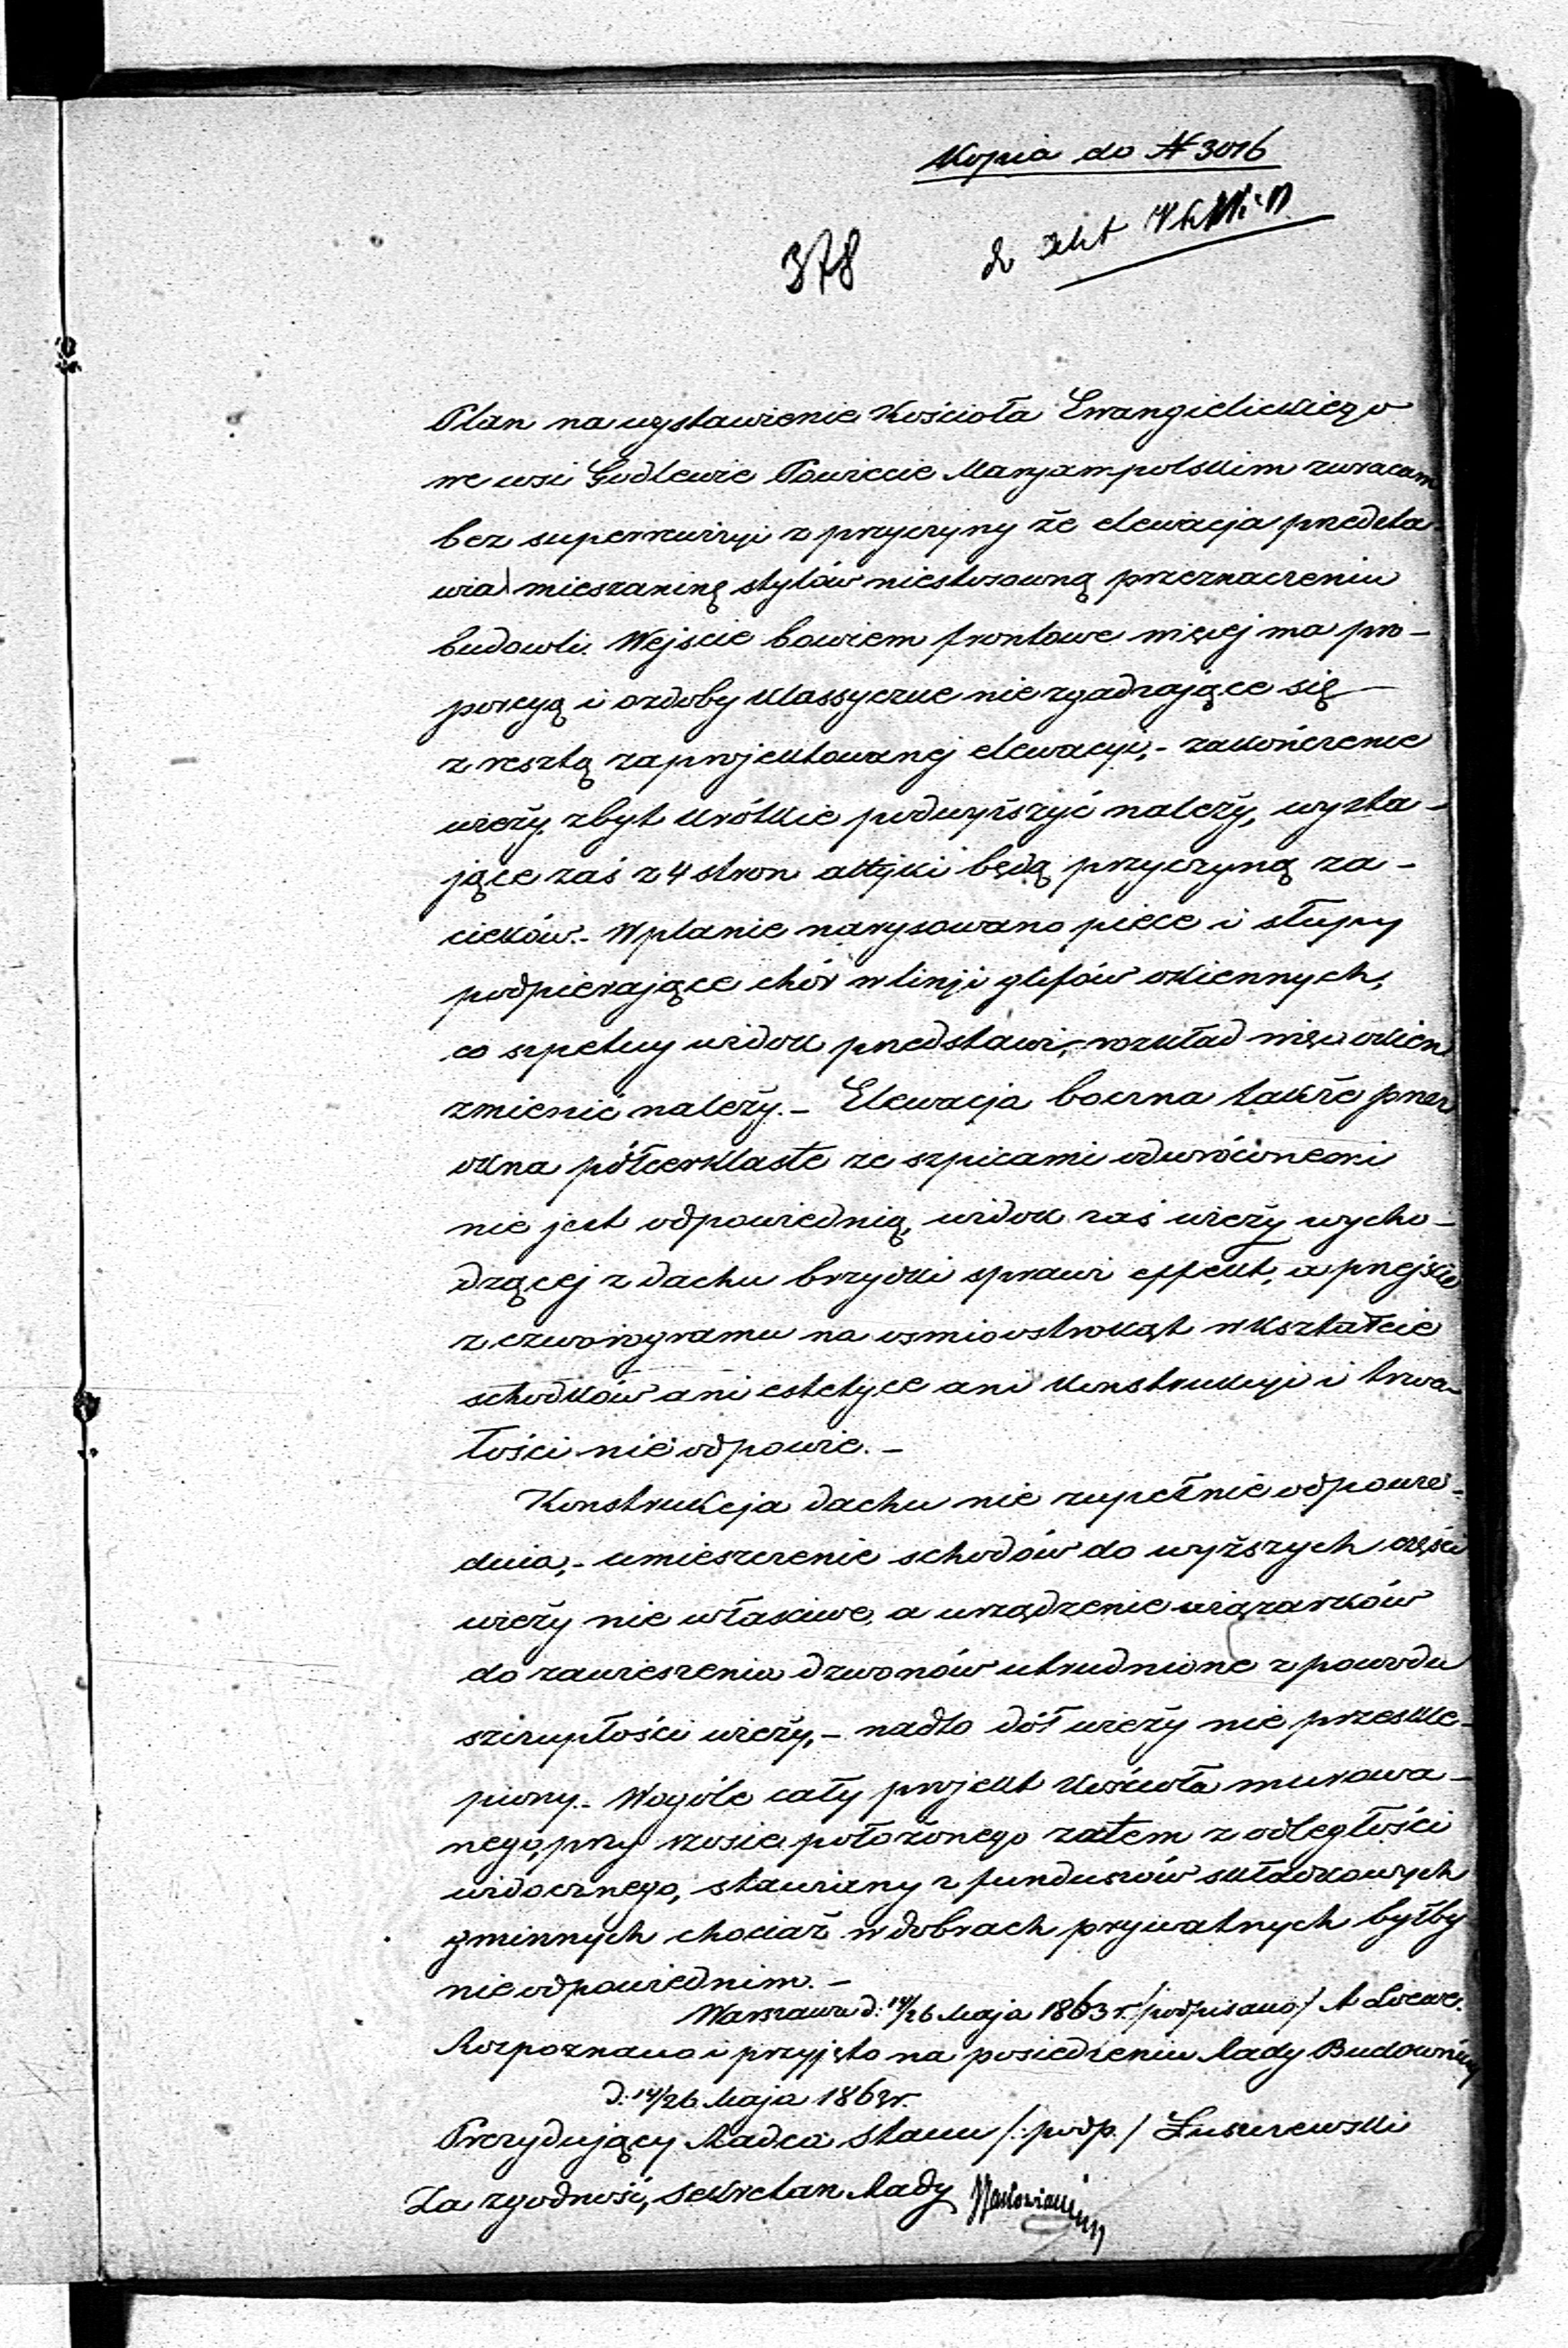 Kopia do № 3016
378
Plan na wystawienie Kościoła Ewangielickiego
we wsi Godlewie Powiecie Maryampolskim zwracam
bez superrewizyi z przyczyny że elewacja przedsta-
wia mieszaninę stylów niestosowną przeznaczeniu
budowli. Wejście bowiem frontowe więcej ma pro-
porcyą i ozdoby klassyczne nie zgadzające się
z resztą zaprojektowanej elewacyi, - zakończenie
wieży zbyt krótkie podwyższyć należy, wysta-
jące zaś z 4 stron attyki będą przyczyną za-
cieków. - W planie narysowano piece i słupy
podpierające chór w linji glifów okiennych,
co szpetny widok przedstawi, - rozkład więc okien
zmienić należy. - Elewacja boczna także przez
okna półcerklaste ze szpicami odwróconemi
nie jest odpowiednią, widok zaś wieży wycho-
dzącej z dachu brzydki sprawi effekt, a przejście
z czworogramu na osmiostrokąt w kształcie
schodków ani estetyce ani konstrukcyi i trwa-
łości nie odpowie. -
Konstrukcja dachu nie zupełnie odpowie-
dnia, - umieszczenie schodów do wyższych części
wieży nie właściwe, a urządzenie wiązarków
do zawieszenia dzwonów utrudnione z powodu
szczupłości wieży, - nadto dół wieży nie przeskle-
piony. - Wogóle cały projekt kościoła murowa-
nego, przy szosie położonego zatem z odległości
widocznego, stawiany z funduszów składkowych
gminnych chociaż w dobrach prywatnych byłby
nieodpowiednim. -
Warszawa d: 14/26 Maja 1863 r. /podpisano/ A Loewe.
Rozpoznano i przyjęto na posiedzeniu Rady Budowniczej
d: 14/26 Maja 1863 r.
Prezydujący Radca Stanu /: podp. / Łuszczewski
Za zgodność, Sekretarz Rady